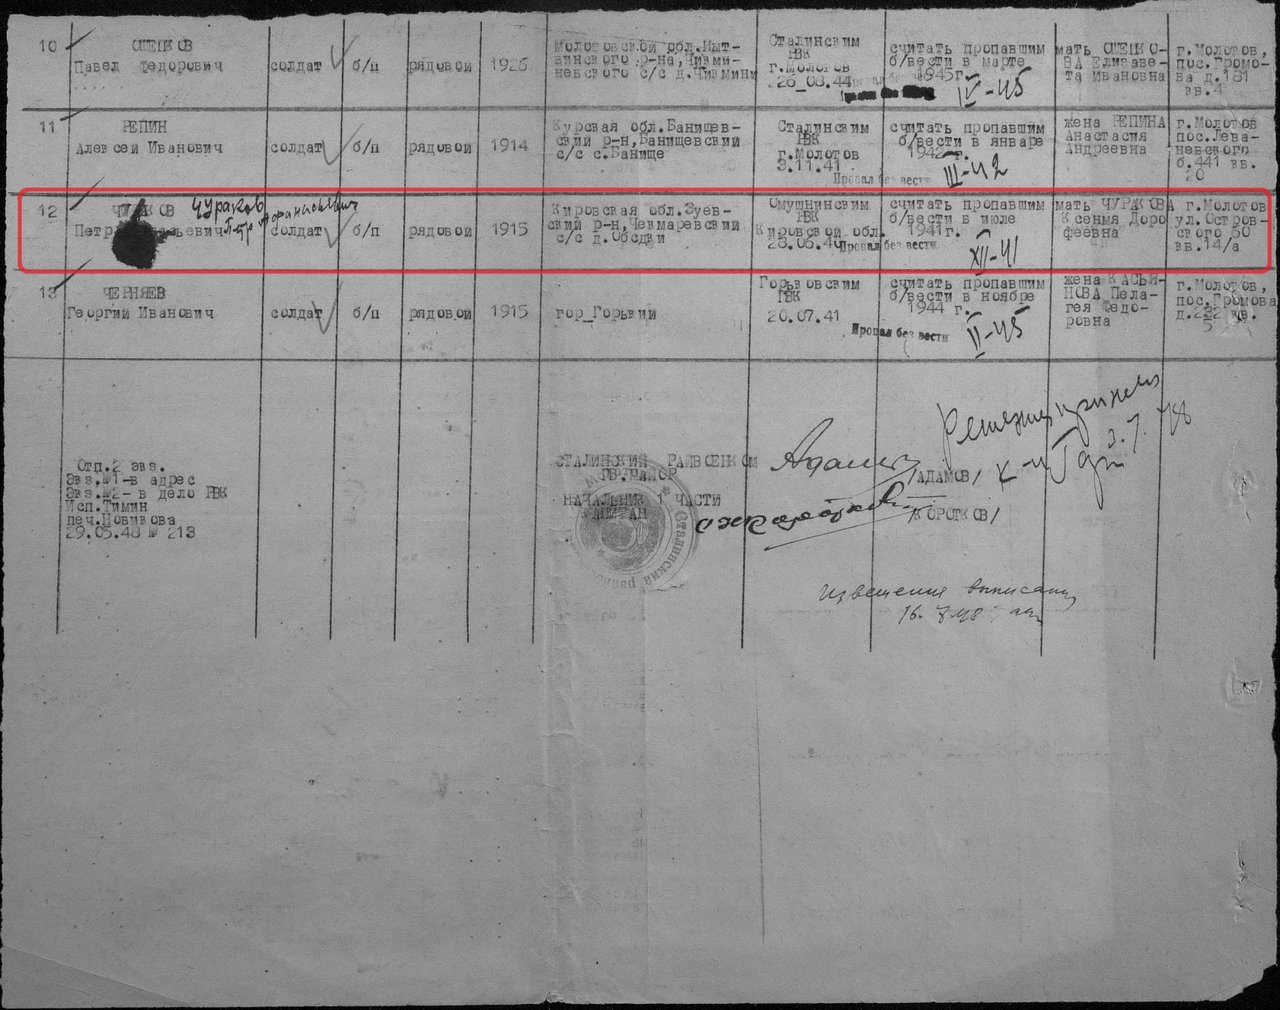 10
ОЩЕПКОВ
Павел Федорович
солдат
б/п
рядовой
1926
Молотовской обл.Ныт-
винского р-на,Чекми-
невского с/с д.Чекмини
Сталинским
РВК
г.Молотов
26_08.44
считать пропавшим
б/вести в марте
1945г.
IV-45
мать ОЩЕПКО-
ВА Елизаве-
та Ивановна
г.Молотов,
пос.Громо-
ва д.181
кв.4
11
РЕПИН
Алексей Иванович
солдат
б/п
рядовой
1914
Курская обл.Банищев-
ский р-н,Банищевский
с/с с.Банище
Сталинским
РВК
г.Молотов
3.11.41
считать пропавшим
б/вести в январе
1942 г.
Пропал без вести
III-42
жена РЕПИНА
Анастасия
Андреевна
г.Молотов
пос.Лева-
невского
б.441 кв.
20
12
Чураков
Петр Афанасьевич
солдат
б/п
рядовой
1915
Кировская обл.Зуев-
ский р-н,Чекмаревский
с/с д.Обсдки
Омушнинским
РВК
Кировской обл.
28.06.40
считать пропавшим
б/вести в июле
1941г.
Пропал без вести
XII-41
мать ЧУРАКОВА
Ксения Доро
феевна
г.Молотов
ул.Остров-
ского 60
кв.14/а
13
ЧЕРНЯЕВ
Георгий Иванович
солдат
б/п
рядовой
1915
гор_Горький
Горьковским
РВК
20.07.41
считать пропавшим
б/вести в ноябре
1944 г.
Пропал без вести
II-45
жена КАСЬЯ-
НОВА Пела-
гея Федо-
ровна
г.Молотов,
пос.Громова
д.222 кв.
5
Отп.2 экз.
Экз.№1-в адрес
Экз.№2- в дело РВК
Исп.Тимин
печ.Новикова
29.05.48 № 213
СТАЛИНСКИЙ РАЙВОЕНКОМ
ГВ.МАЙОР
/АДАМОВ/
НАЧАЛЬНИК 1 ЧАСТИ
КАПИТАН
/КОРОТКОВ/
3.7.48
Извещения выписаны
16.7.48